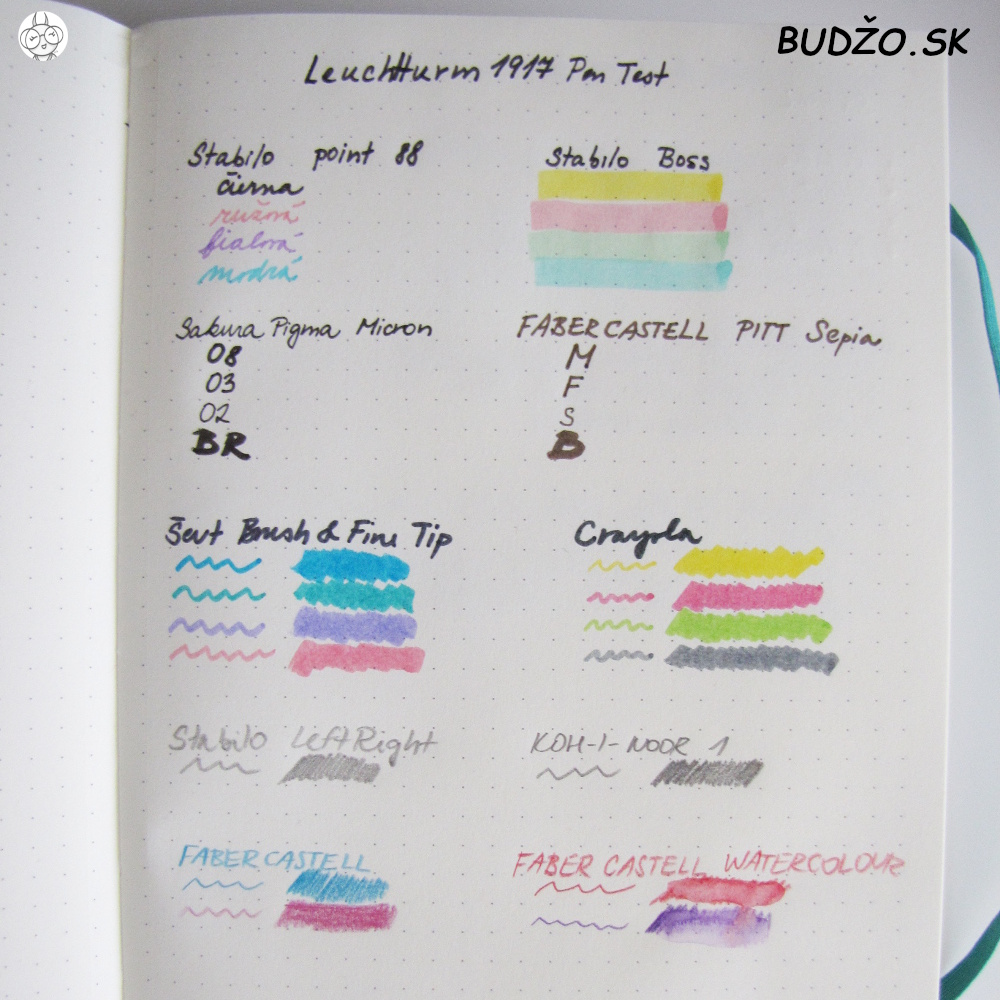 BUDŽO.SK
Leuchtturm 1917 Pen Test
Stabilo point 88
čierna
ružová
fialová
modrá
Stabilo Boss
Sakura Pigma Micron
08
03
02
BR
FABER CASTELL PITT Sepia
M
F
S
B
Brush & Fine Tip
Crayola
Stabilo LeftRight
KOH-I-NOOR 1
FABER CASTELL
FABER CASTELL WATERCOLOUR